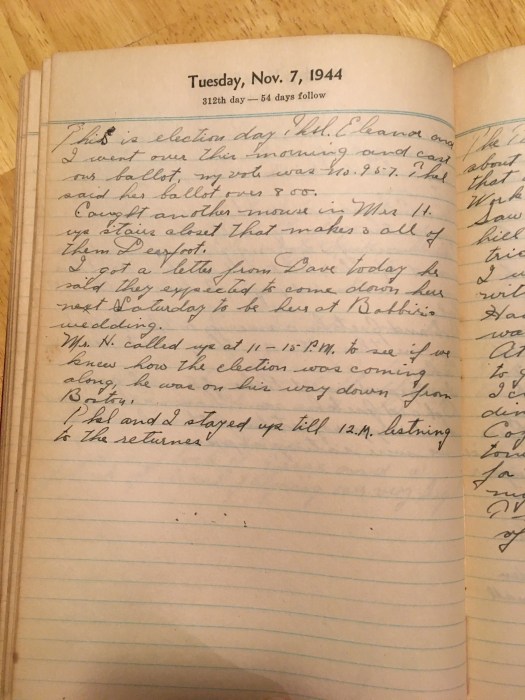 Tuesday, Nov. 7, 1944
312th day — 54 days follow
This is election day Phil. Eleanor and
I went over this morning and cast
our ballot, my vote was No. 957. Phil
said his ballot over 800.
Caught another mouse in Mrs H.
up stairs closet that makes 3 all of
them Deerfoot.
I got a letter from Dave today he
said they expected to come down here
next Saturday to be here at Bobbie's
wedding.
Mr. H. called up at 11-15 P.M. to see if we
knew how the election was coming
along, he was on his way down from
Boston.
Phil and I stayed up till 12.M. listning
to the returnes
The
about
that
Work
Saw
hill
I w
writ
Ha
wa
At
to g
I c
din
Co
for
my
of